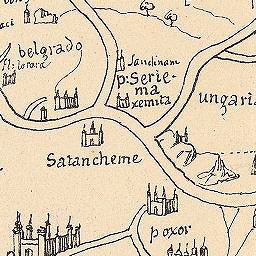 belgrado
sandinam
p: serie-
ma
xemita
ungaria
Satancheme
poxor